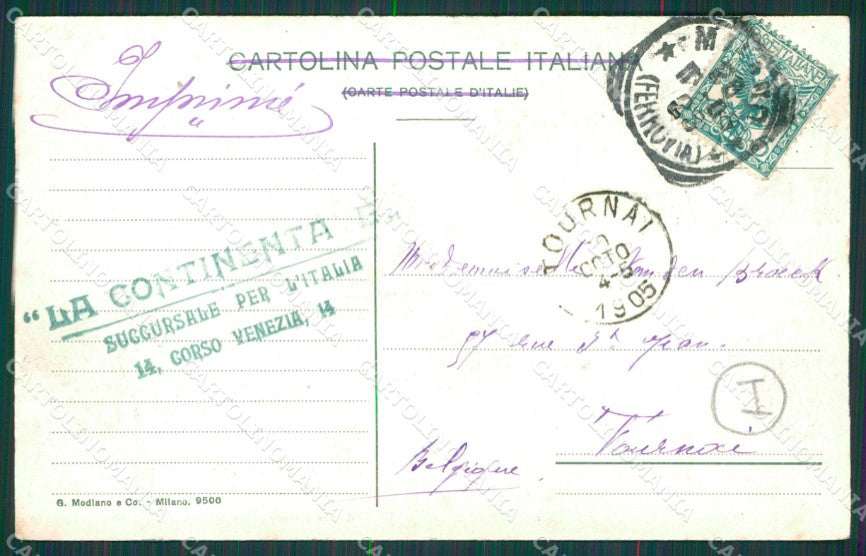 CARTOLINA POSTALE ITALIANA
(CARTE POSTALE D'ITALIE)
Imprimé
"LA CONTINENTA
SUCCURSALE PER L'ITALIA
14, CORSO VENEZIA, 14
(FERROVIA)
TOURNAI
OCTO
4-5
1905
Mademoiselle Vanden Broeck
57 rue St Jean.
Tournai
Belgique.
I
G. Modiano e Co. - Milano. 9500
CARTOLINOMANIA